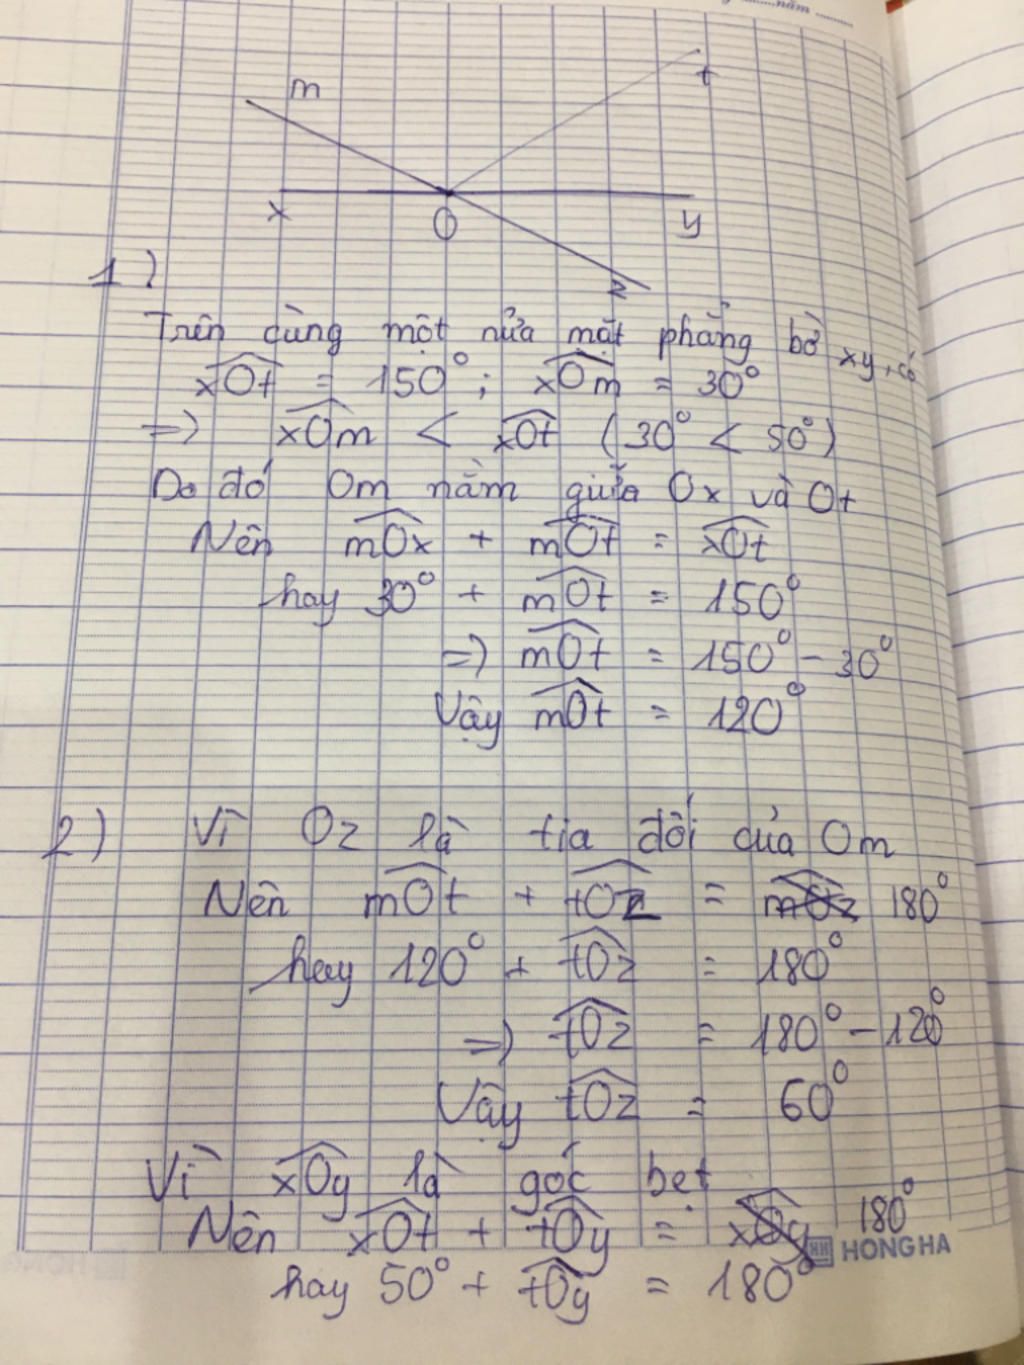 năm
m
t
x
O
y
z
1)
Trên cùng một nửa mặt phẳng bờ xy, có
xOt = 150°; xOm = 30°
=> xOm < xOt (30° < 50°)
Do đó Om nằm giữa Ox và Ot
Nên mOx + mOt = xOt
hay 30° + mOt = 150°
=> mOt = 150° - 30°
Vậy mOt = 120°
2) Vì Oz là tia đối của Om
Nên mOt + tOz = mOz 180°
hay 120° + tOz = 180°
=> tOz = 180° - 120°
Vậy tOz = 60°
Vì xOy là góc bẹt
Nên xOt + tOy = xOy 180°
HH HONG HA
hay 50° + tOy = 180°